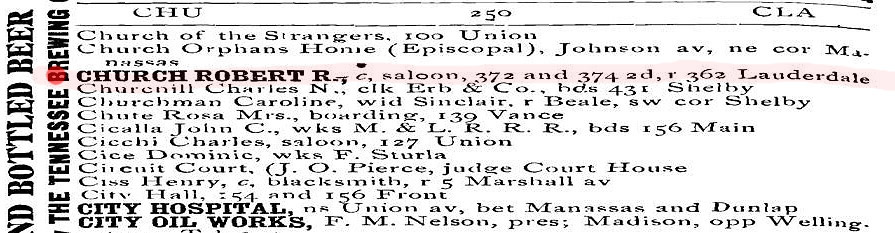 CHU 250 CLA
Church of the Strangers, 100 Union
Church Orphans Home (Episcopal), Johnson av, ne cor Ma-
nassas
CHURCH ROBERT R., c, saloon, 372 and 374 2d, r 362 Lauderdale
Churchill Charles N., clk Erb & Co., bds 431 Shelby
Churchman Caroline, wid Sinclair, r Beale, sw cor Shelby
Chute Rosa Mrs., boarding, 139 Vance
Cicalla John C., wks M. & L. R. R. R., bds 156 Main
Cicchi Charles, saloon, 127 Union
Cice Dominic, wks F. Sturla
Circuit Court, (J. O. Pierce, judge Court House
Ciss Henry, c, blacksmith, r 5 Marshall av
City Hall, 154 and 156 Front
CITY HOSPITAL, ns Union av, bet Manassas and Dunlap
CITY OIL WORKS, F. M. Nelson, pres; Madison, opp Welling-
ND BOTTLED BEER
THE TENNESSEE BREWING